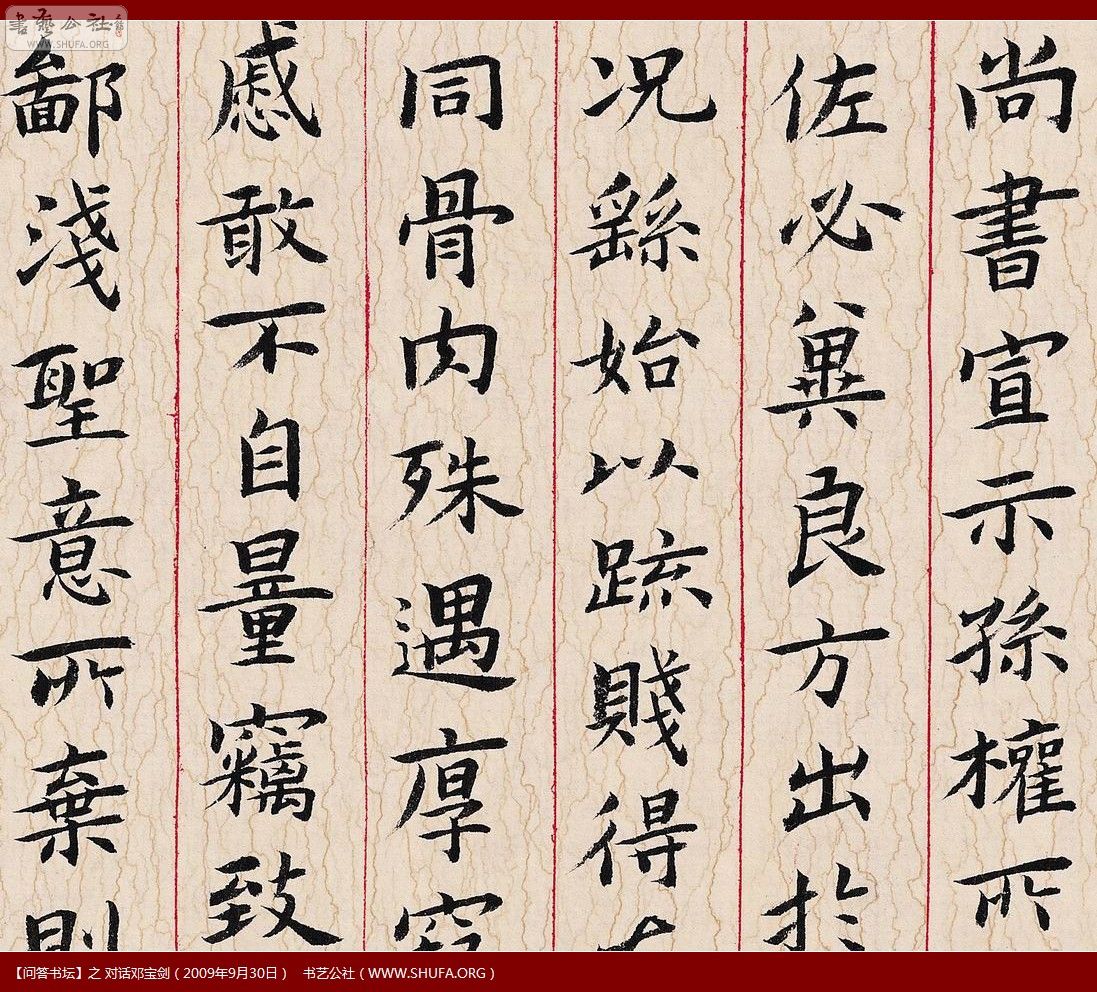 尚書宣示孫權所
佐必冀良方出於
况繇始以疏賤得
同骨肉殊遇厚
慼敢不自量竊致
鄙淺聖意所棄則
書藝公社
WWW.SHUFA.ORG
【问答书坛】之 对话邓宝剑（2009年9月30日） 书艺公社（WWW.SHUFA.ORG）